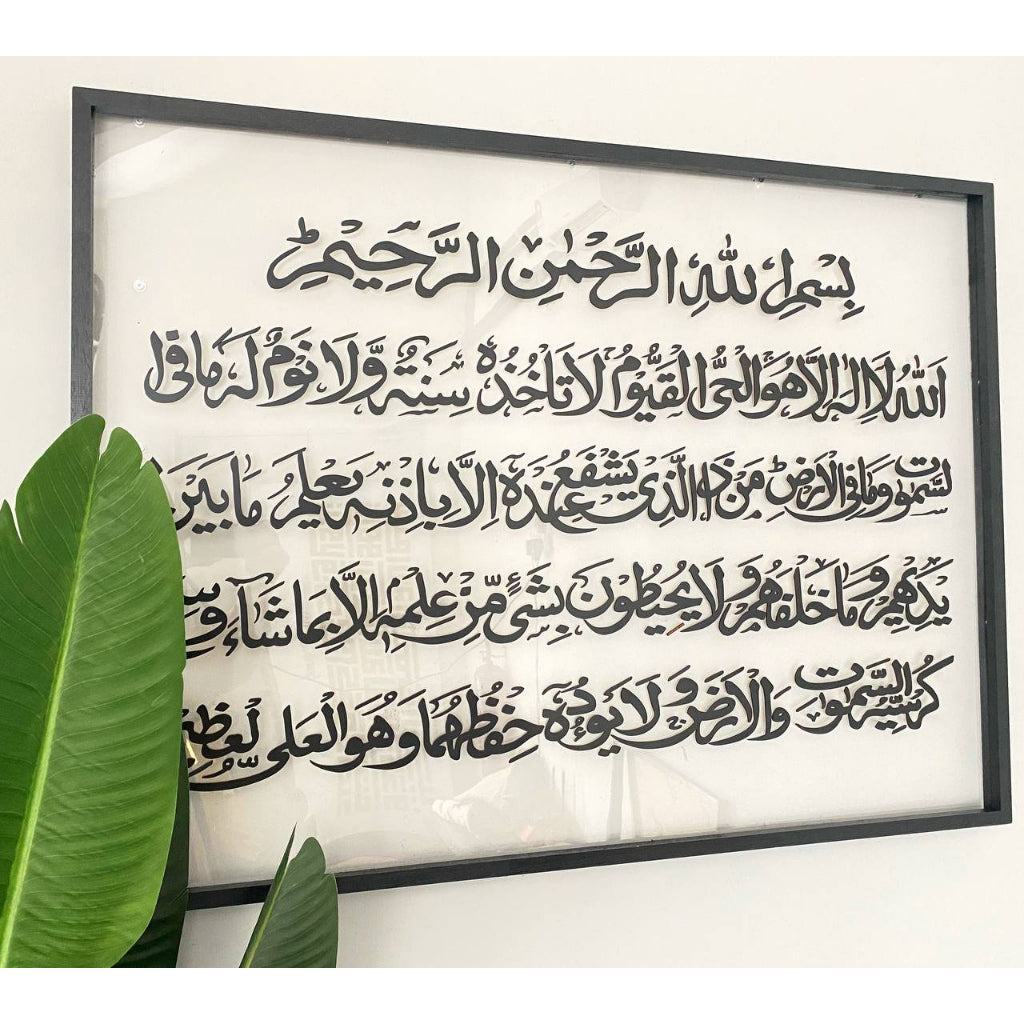 بِسْمِ اللهِ الرَّحْمٰنِ الرَّحِيْمِ
اَللهُ لَا اِلٰهَ اِلَّا هُوَ الْحَیُّ الْقَيُّوْمُ لَا تَاْخُذُهٗ سِنَةٌ وَّلَا نَوْمٌ لَهٗ مَا فِی
السَّمٰوٰتِ وَمَا فِی الْاَرْضِ مَنْ ذَا الَّذِیْ يَشْفَعُ عِنْدَهٗ اِلَّا بِاِذْنِهٖ يَعْلَمُ مَا بَيْنَ
يْدِيْهِمْ وَمَا خَلْفَهُمْ وَلَا يُحِيْطُوْنَ بِشَیْءٍ مِّنْ عِلْمِهٖ اِلَّا بِمَا شَآءَ
كُرْسِيُّهُ السَّمٰوٰتِ وَالْاَرْضَ وَلَا يَئُوْدُهٗ حِفْظُهُمَا وَهُوَ الْعَلِیُّ